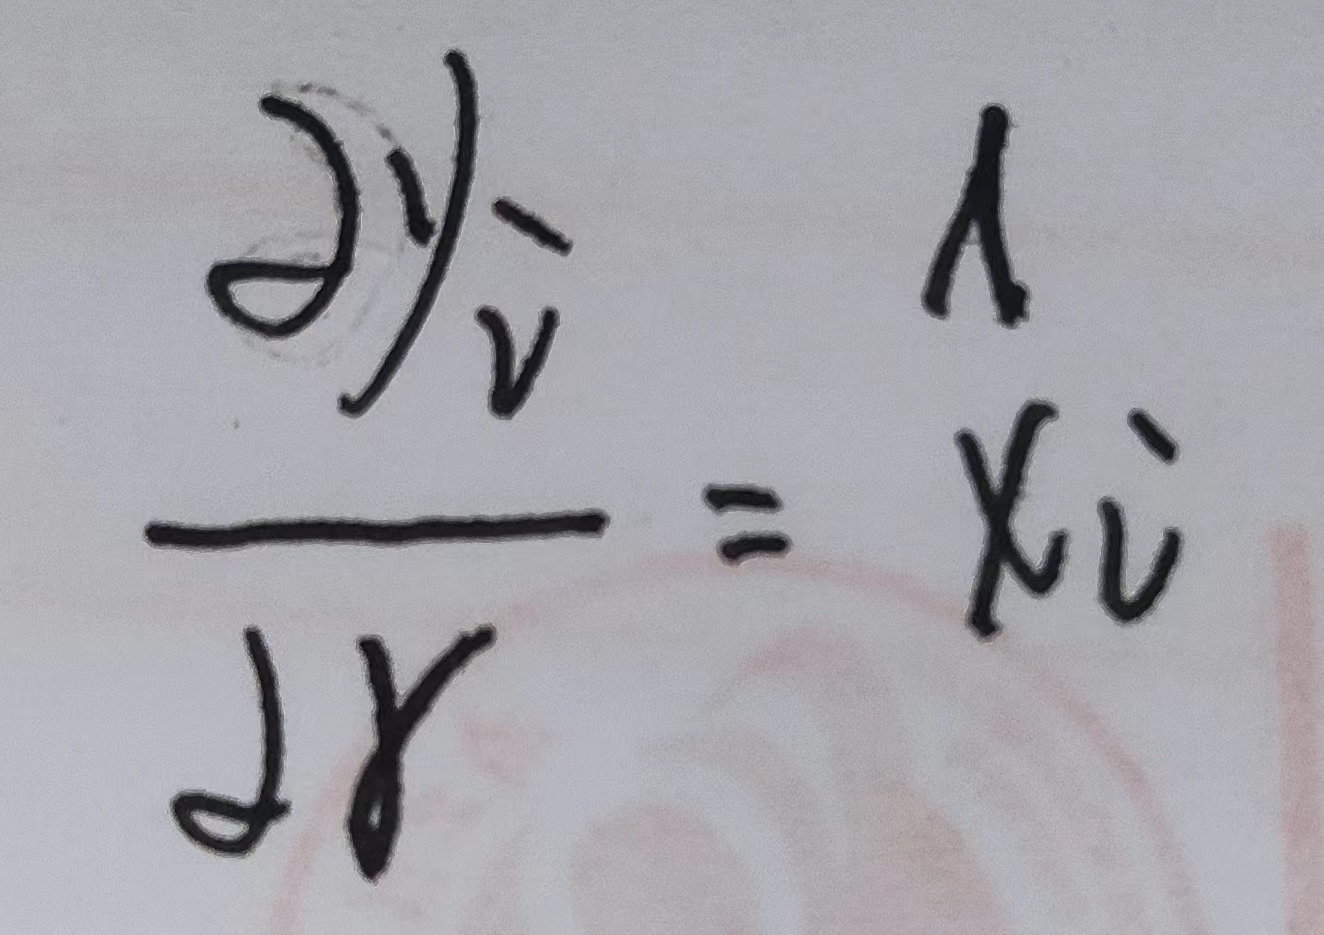 ∂yi / ∂γ = x̂i